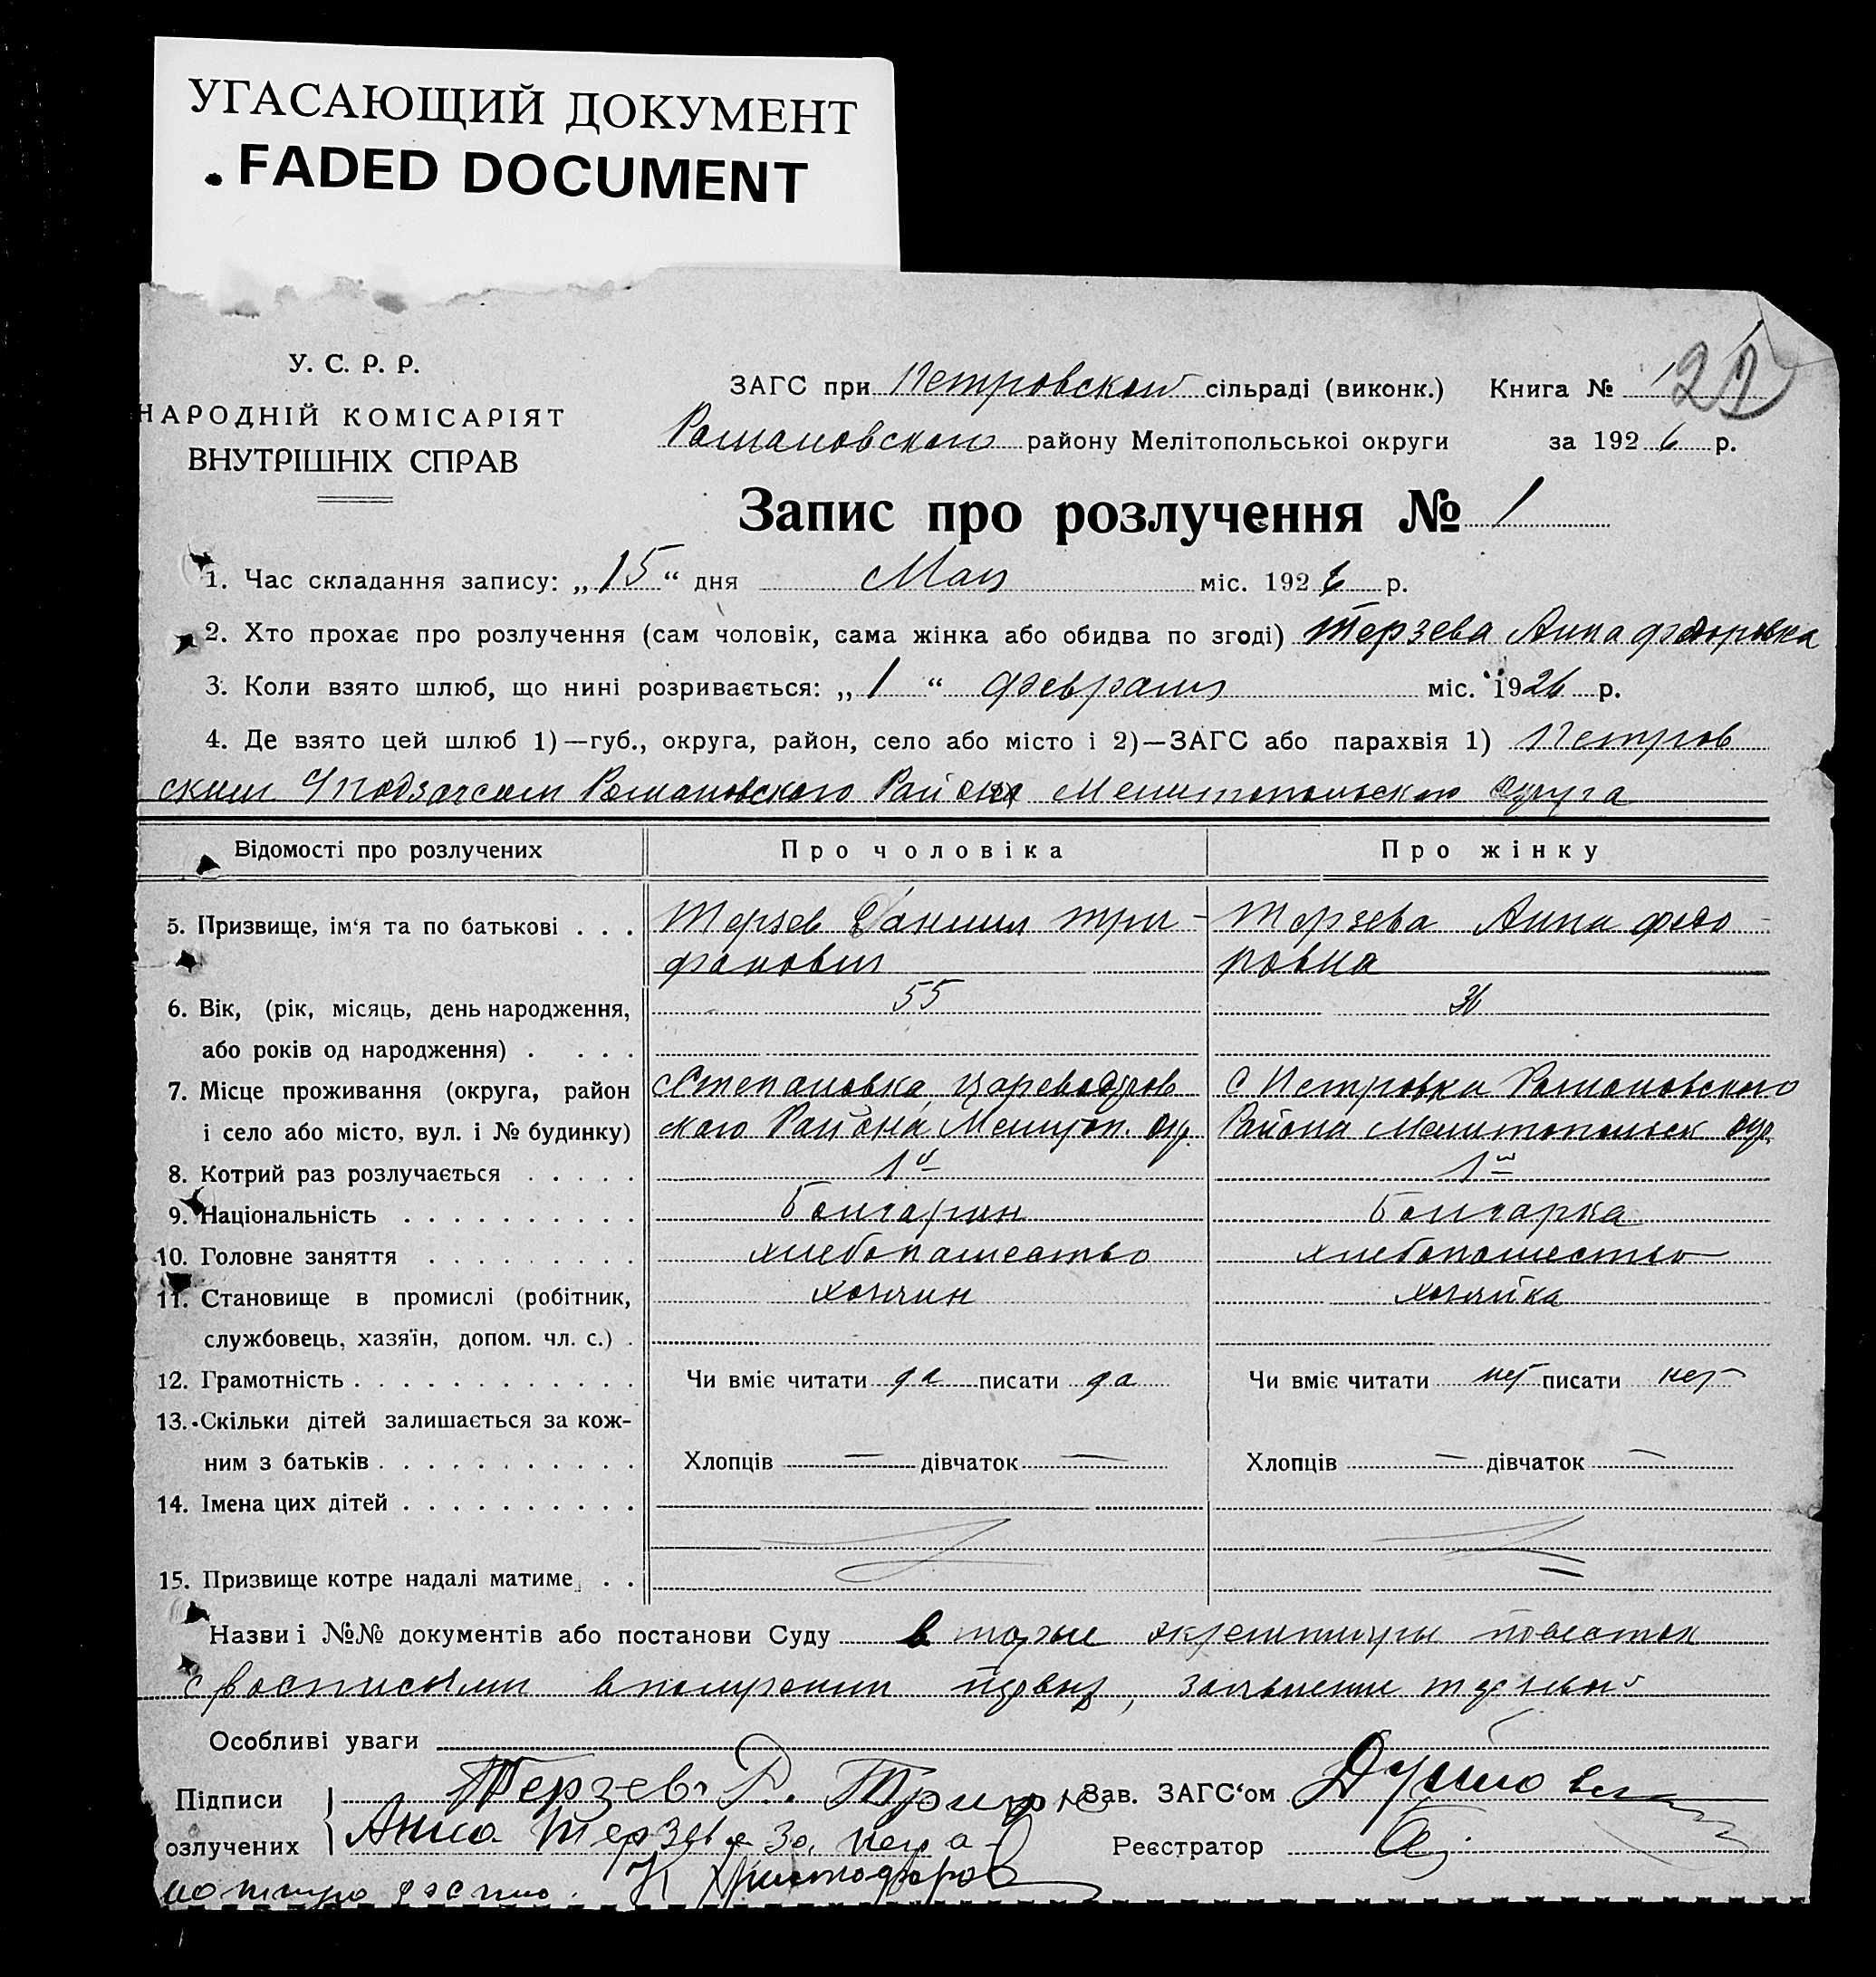 УГАСАЮЩИЙ ДОКУМЕНТ
FADED DOCUMENT
У. С. Р. Р.
НАРОДНІЙ КОМІСАРІЯТ
ВНУТРІШНІХ СПРАВ
ЗАГС при Петровской сільраді (виконк.) Книга № 1
21
Романовского району Мелітопольської округи за 1926 р.
Запис про розлучення № 1
1. Час складання запису: „15“ дня Мая міс. 1926 р.
2. Хто прохає про розлучення (сам чоловік, сама жінка або обидва по згоді) Терзева Анна федоровна
3. Коли взято шлюб, що нині розривається: „1“ февраля міс. 1926 р.
4. Де взято цей шлюб 1)—губ., округа, район, село або місто і 2)—ЗАГС або парахвія 1) Петров
ским Романовского Района Мелитопольского округа
Відомості про розлучених
Про чоловіка
Про жінку
5. Призвище, ім‘я та по батькові . . . Терзев Даниил Три-
фанович
Терзева Анна федо-
ровна
6. Вік, (рік, місяць, день народження,
або років од народження) . . . . 55
36
7. Місце проживання (округа, район
і село або місто, вул. і № будинку)
с Степановка, Цареводаров
ского Района, Мелитоп. окр.
С Петровки Романовского
Района Мелитопольск окр.
8. Котрий раз розлучається . . . . .
1й
1й
9. Національність . . . . . . . . . . Болгарин
Болгарка
10. Головне заняття . . . . . . . . . хлебопашество
хлебопашество
11. Становище в промислі (робітник,
службовець, хазяїн, допом. чл. с.) . хозяин
хозяйка
12. Грамотність . . . . . . . . . . . . Чи вміє читати да писати да
Чи вміє читати нет писати нет
13. Скільки дітей залишається за кож-
ним з батьків . . . . . . . . . . . Хлопців — дівчаток —
Хлопців — дівчаток —
14. Імена цих дітей . . . . . . . . . .
15. Призвище котре надалі матиме . .
Назви і №№ документів або постанови Суду экземпляры повесток
с росписями в получении, заявление
Особливі уваги
Підписи
озлучених
Терзев Д. Зав. ЗАГС‘ом
Анна Терзева за Реєстратор
К Христофоров